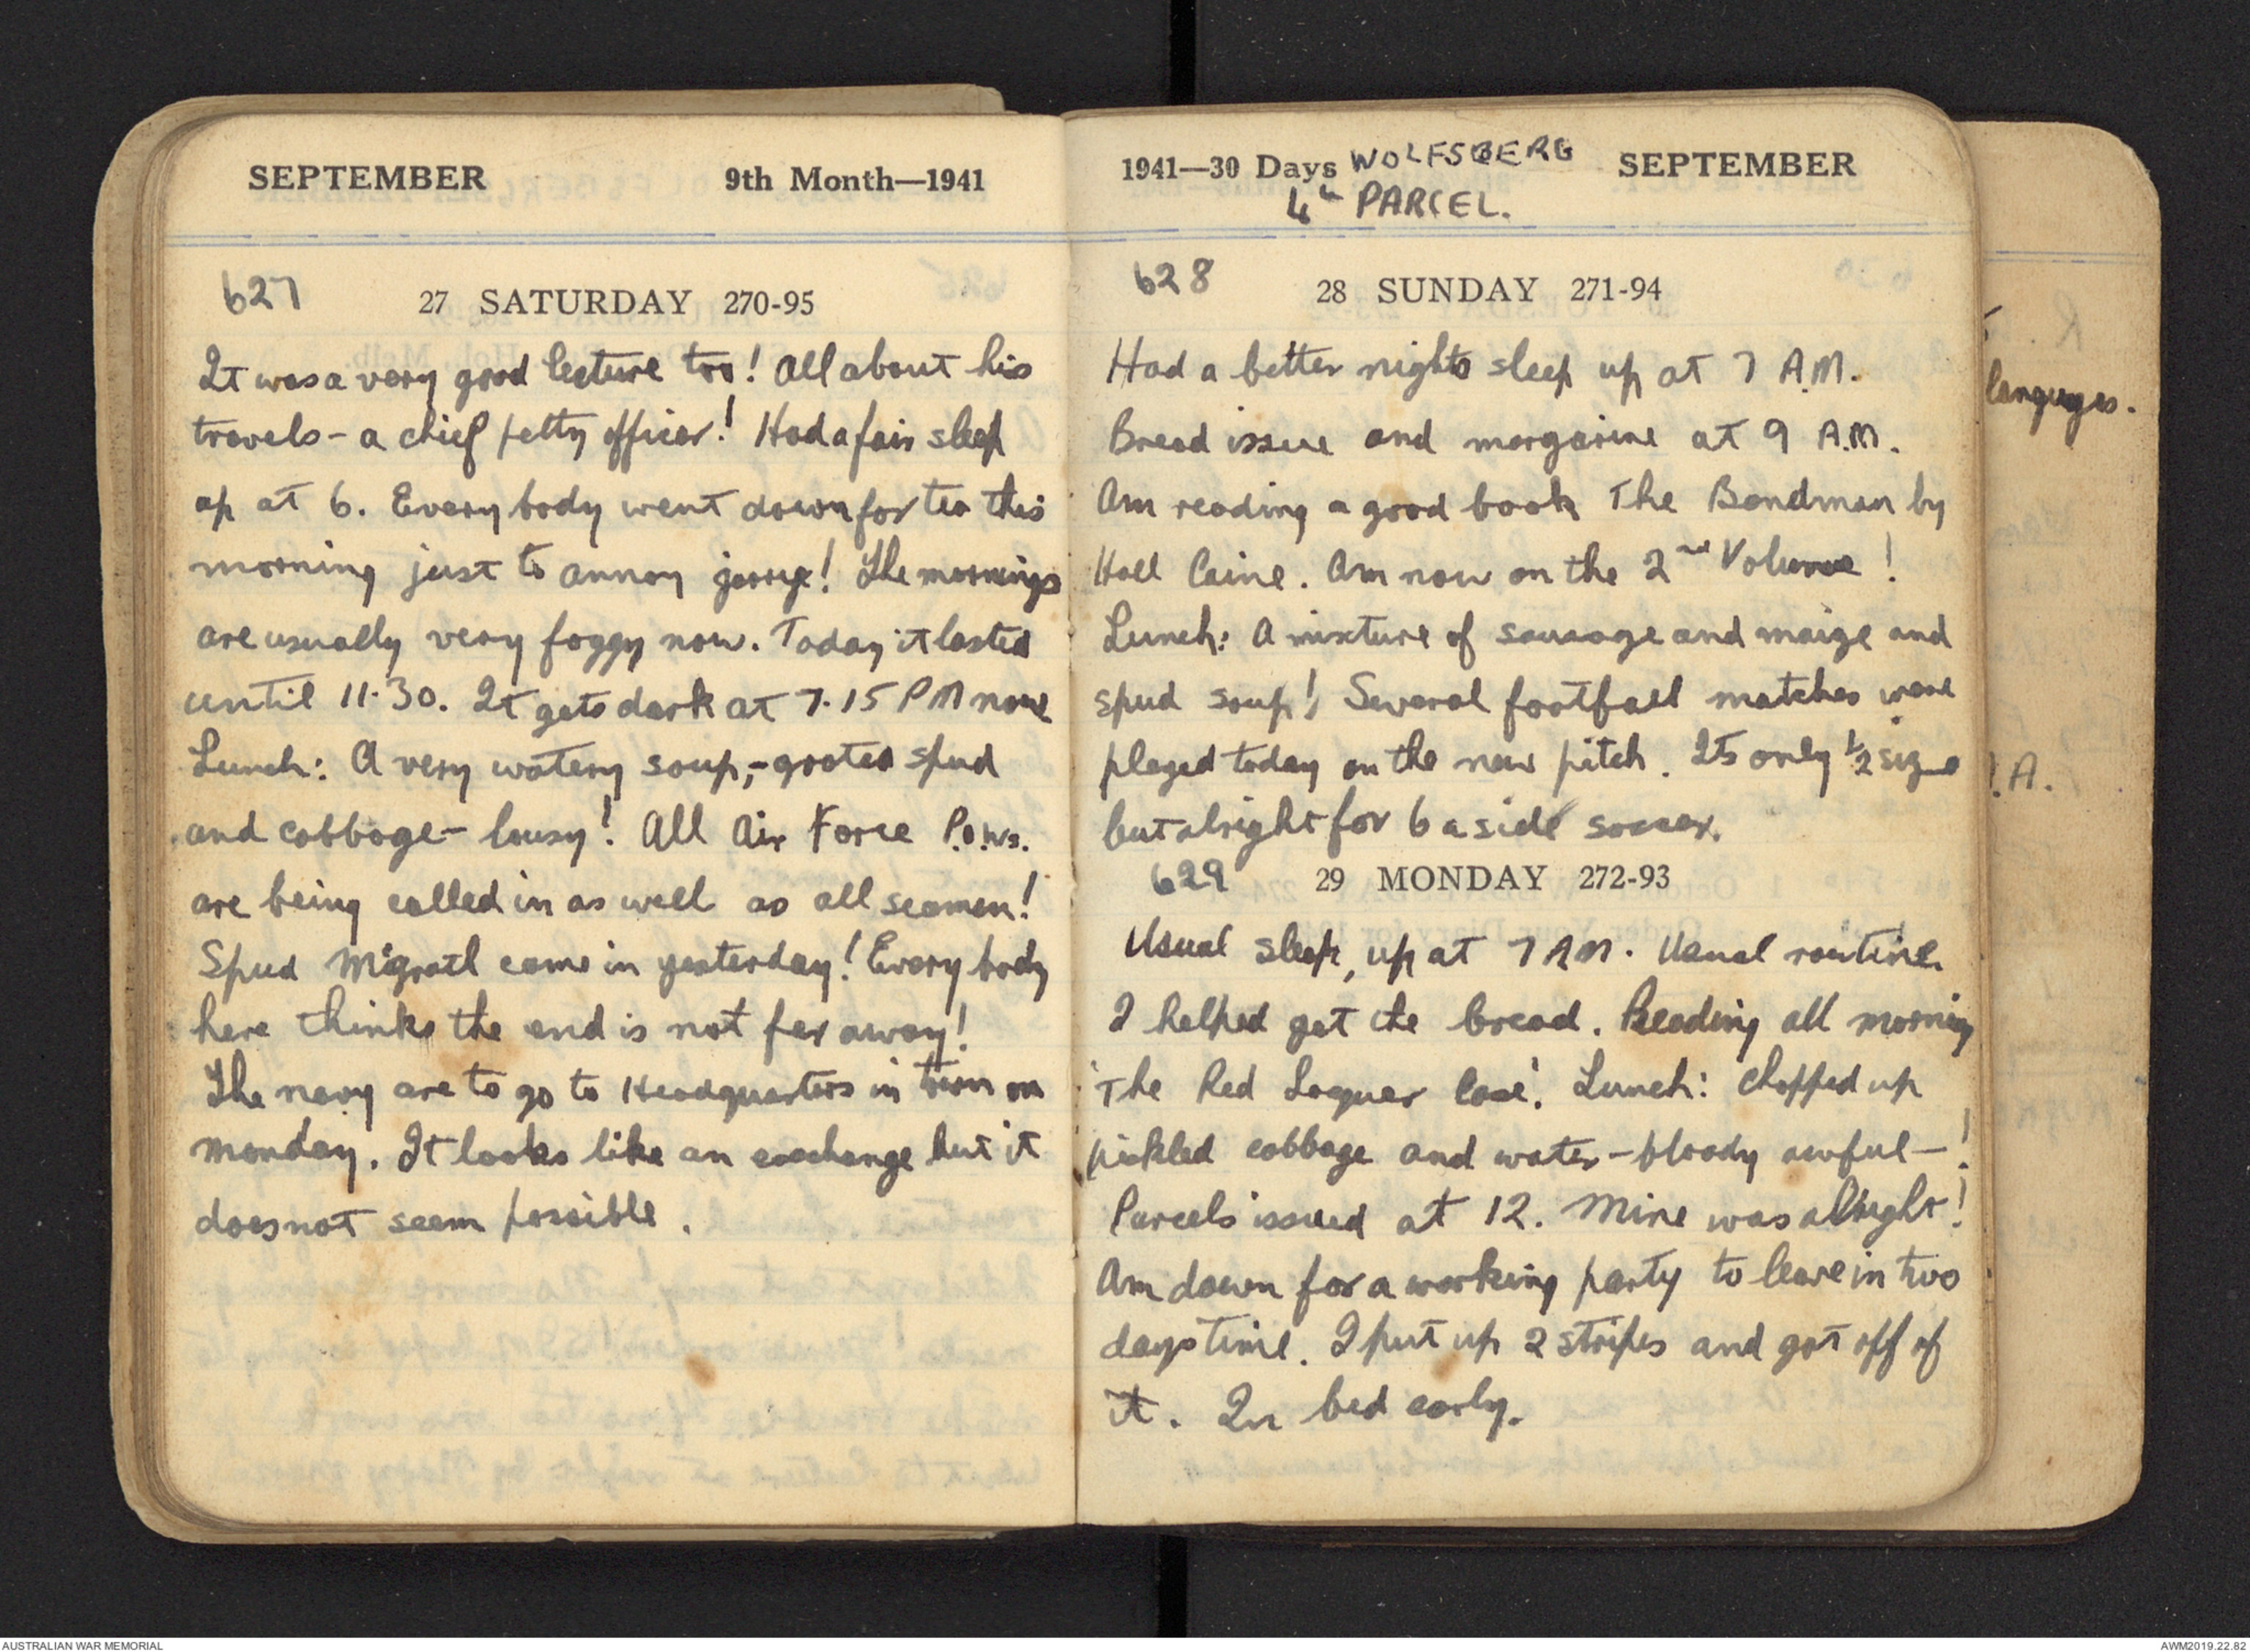 SEPTEMBER 9th Month—1941
627 27 SATURDAY 270-95
It was a very good lecture too! All about his
travels - a chief petty officer! Had a fair sleep
up at 6. Every body went down for tea this
morning just to annoy jerry! The mornings
are usually very foggy now. Today it lasted
until 11.30. It gets dark at 7.15 PM now
Lunch: A very watery soup, - grated spud
and cabbage - lousy! All Air Force P.O.Ws.
are being called in as well as all seamen!
Spud came in yesterday! Every body
here thinks the end is not far away!
The navy are to go to Headquarters in town on
monday. It looks like an exchange but it
does not seem possible.
1941—30 Days WOLFSBERG SEPTEMBER
4th PARCEL.
628 28 SUNDAY 271-94
Had a better nights sleep up at 7 A.M.
Bread issue and margarine at 9 A.M.
Am reading a good book The Bondman by
Hall Caine. Am now on the 2nd Volume!
Lunch: A mixture of sausage and maize and
spud soup! Several football matches were
played today on the new pitch. Its only ½ size
but alright for 6 a side soccer.
629 29 MONDAY 272-93
Usual sleep, up at 7 AM. Usual routine.
I helped get the bread. Reading all morning
'The Red Laquer Case'. Lunch: Chopped up
pickled cabbage and water - bloody awful - !
Parcels issued at 12. Mine was alright!
Am down for a working party to leave in two
days time. I put up 2 stripes and got off of
it. In bed early.
languges.
.A.
AUSTRALIAN WAR MEMORIAL AWM2019.22.82